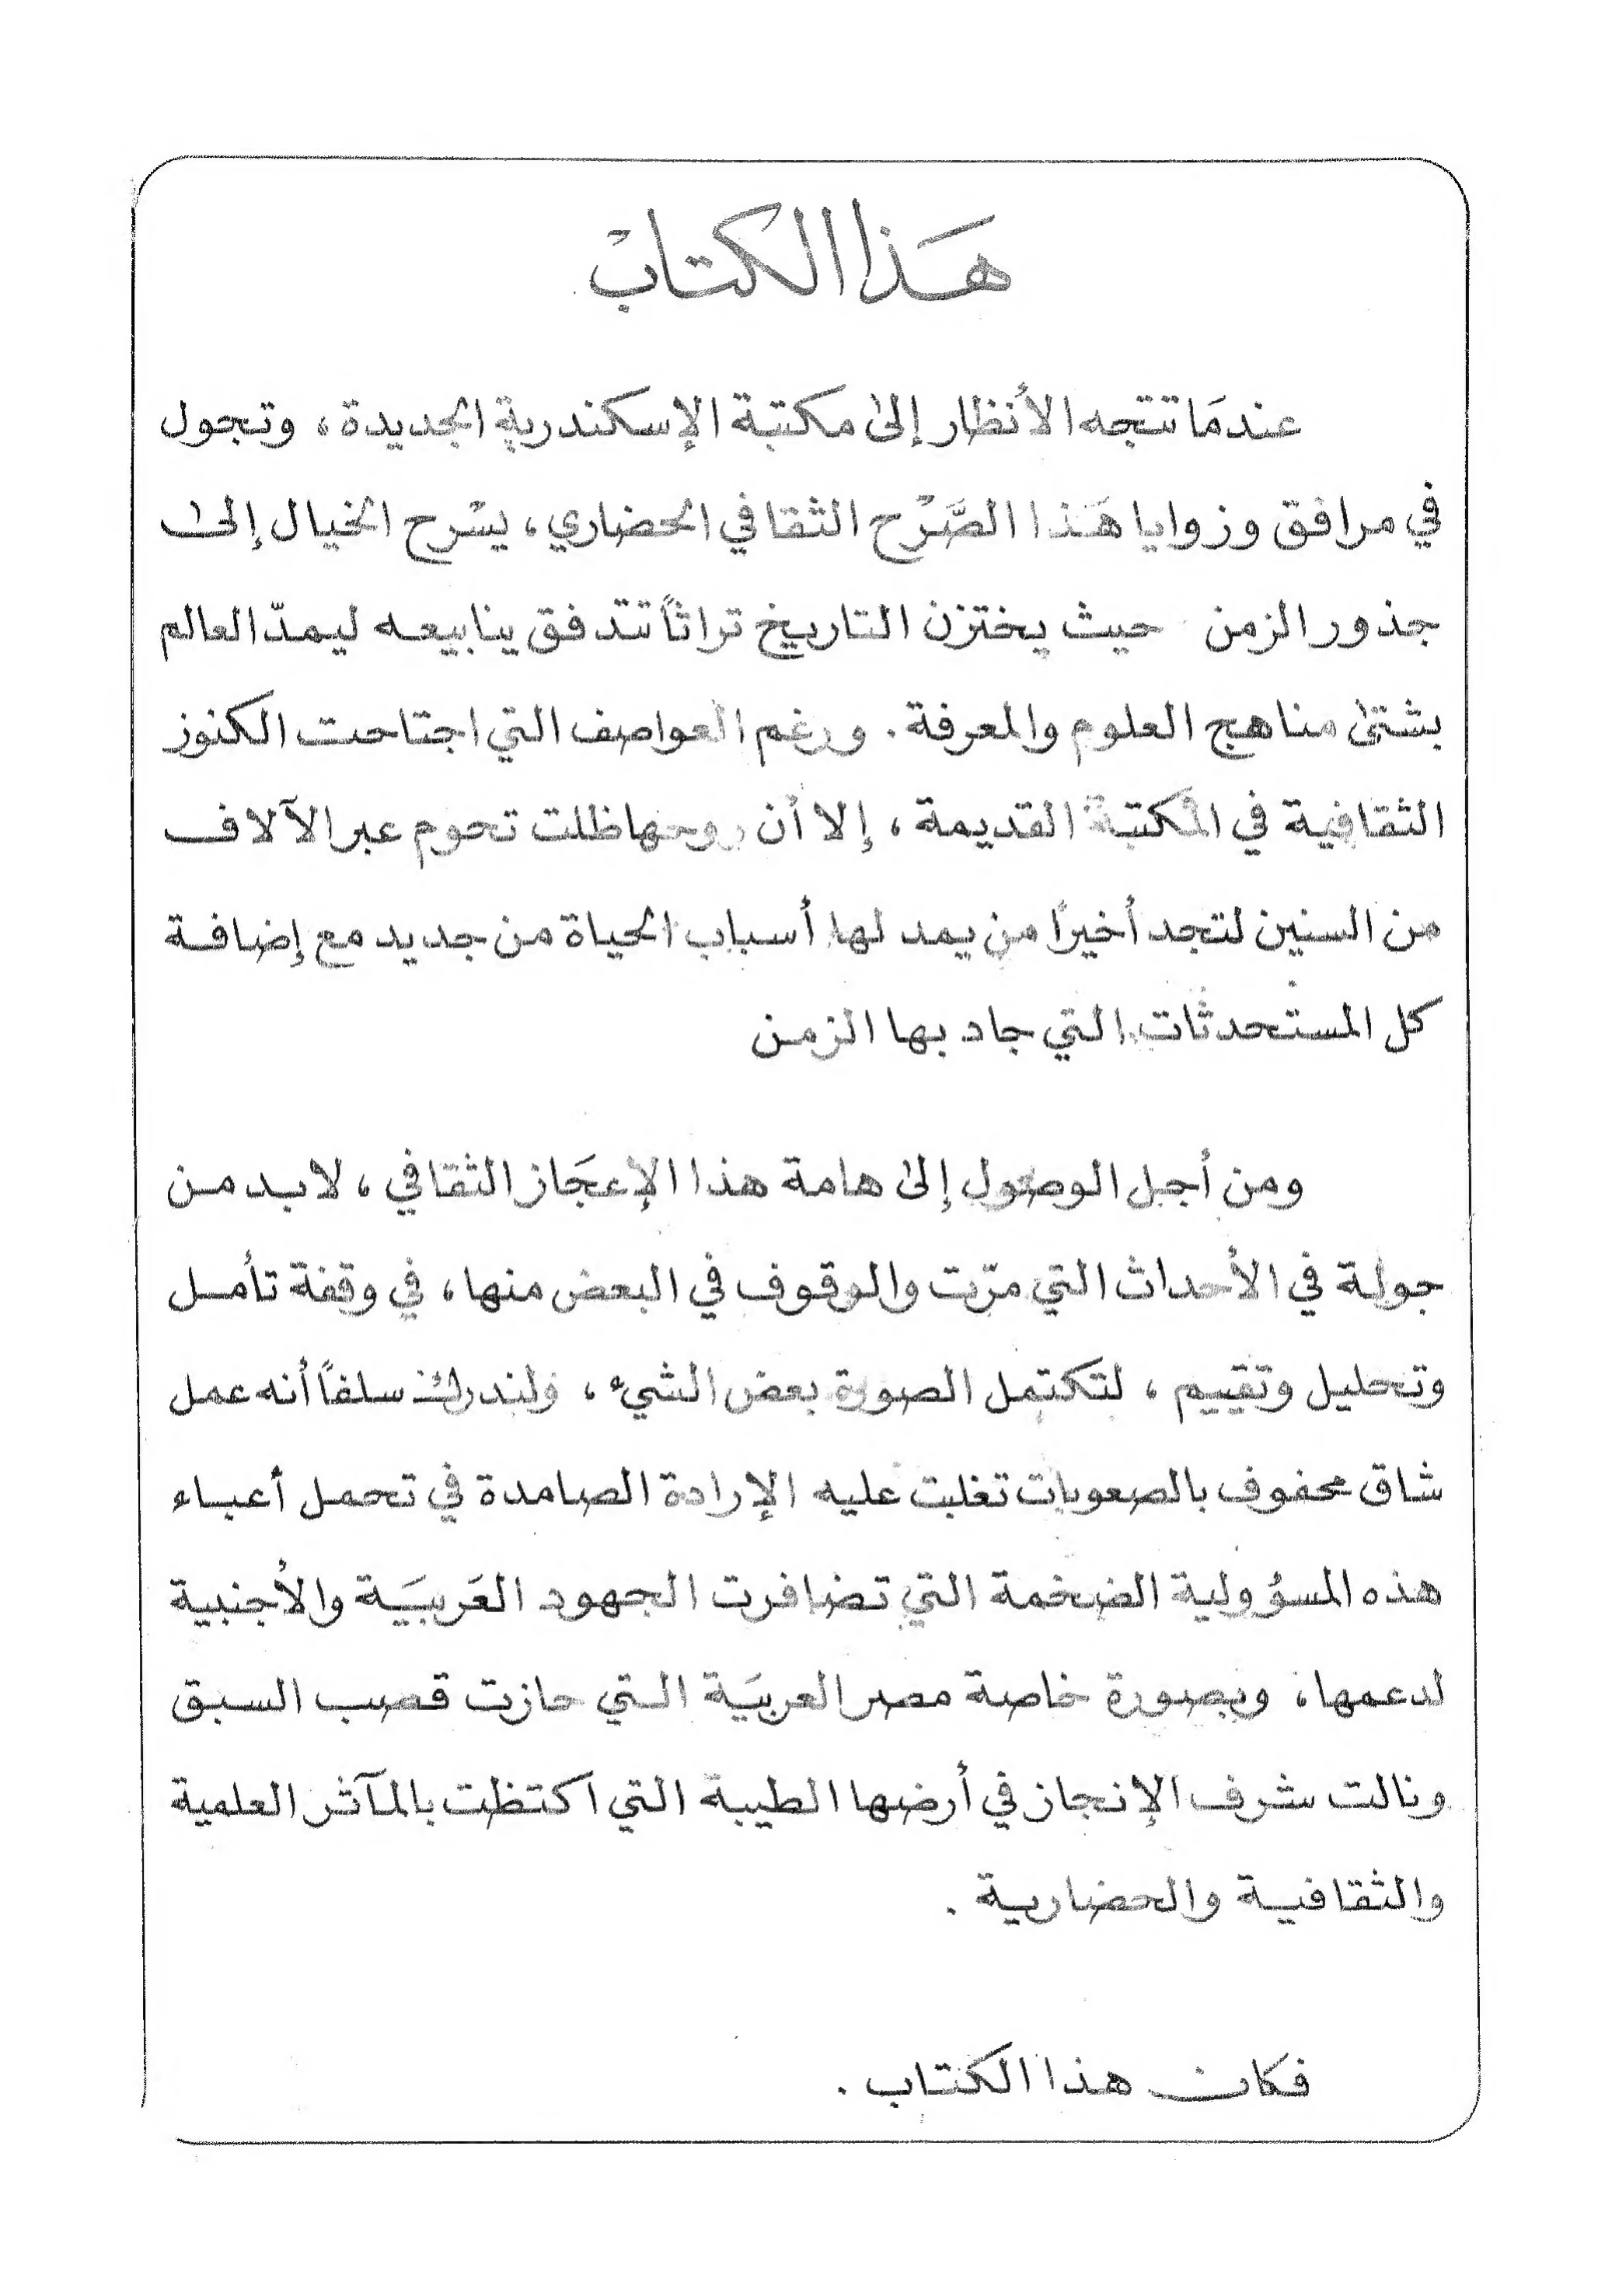 هَذا الكتابْ
عندمَا تتجه الأنظار إلى مكتبة الإسكندرية الجديدة، وتجول
في مرافق وزوايا هَذا الصَّرْح الثقافي الحضاري، يسْرح الخيال إلى
جذور الزمن حيث يختزن التاريخ تراثاً تتدفق ينابيعه ليمدّ العالم
بشتى مناهج العلوم والمعرفة. ورغم العواصف التي اجتاحت الكنوز
الثقافية في المكتبة القديمة، إلا أن روحها ظلت تحوم عبر الآلاف
من السنين لتجد أخيرًا من يمد لها أسباب الحياة من جديد مع إضافة
كل المستحدثات التي جاد بها الزمن
ومن أجل الوصول إلى هامة هذا الإعجَاز الثقافي، لابد من
جولة في الأحداث التي مرّت والوقوف في البعض منها، في وقفة تأمل
وتحليل وتقييم، لتكتمل الصورة بعض الشيء، ولندرك سلفاً أنه عمل
شاق محفوف بالصعوبات تغلبت عليه الإرادة الصامدة في تحمل أعباء
هذه المسؤولية الضخمة التي تضافرت الجهود العَربيَة والأجنبية
لدعمها، وبصورة خاصة مصر العربيَة التي حازت قصب السبق
ونالت شرف الإنجاز في أرضها الطيبة التي اكتظت بالمآثر العلمية
والثقافية والحضارية.
فكان هذا الكتاب.